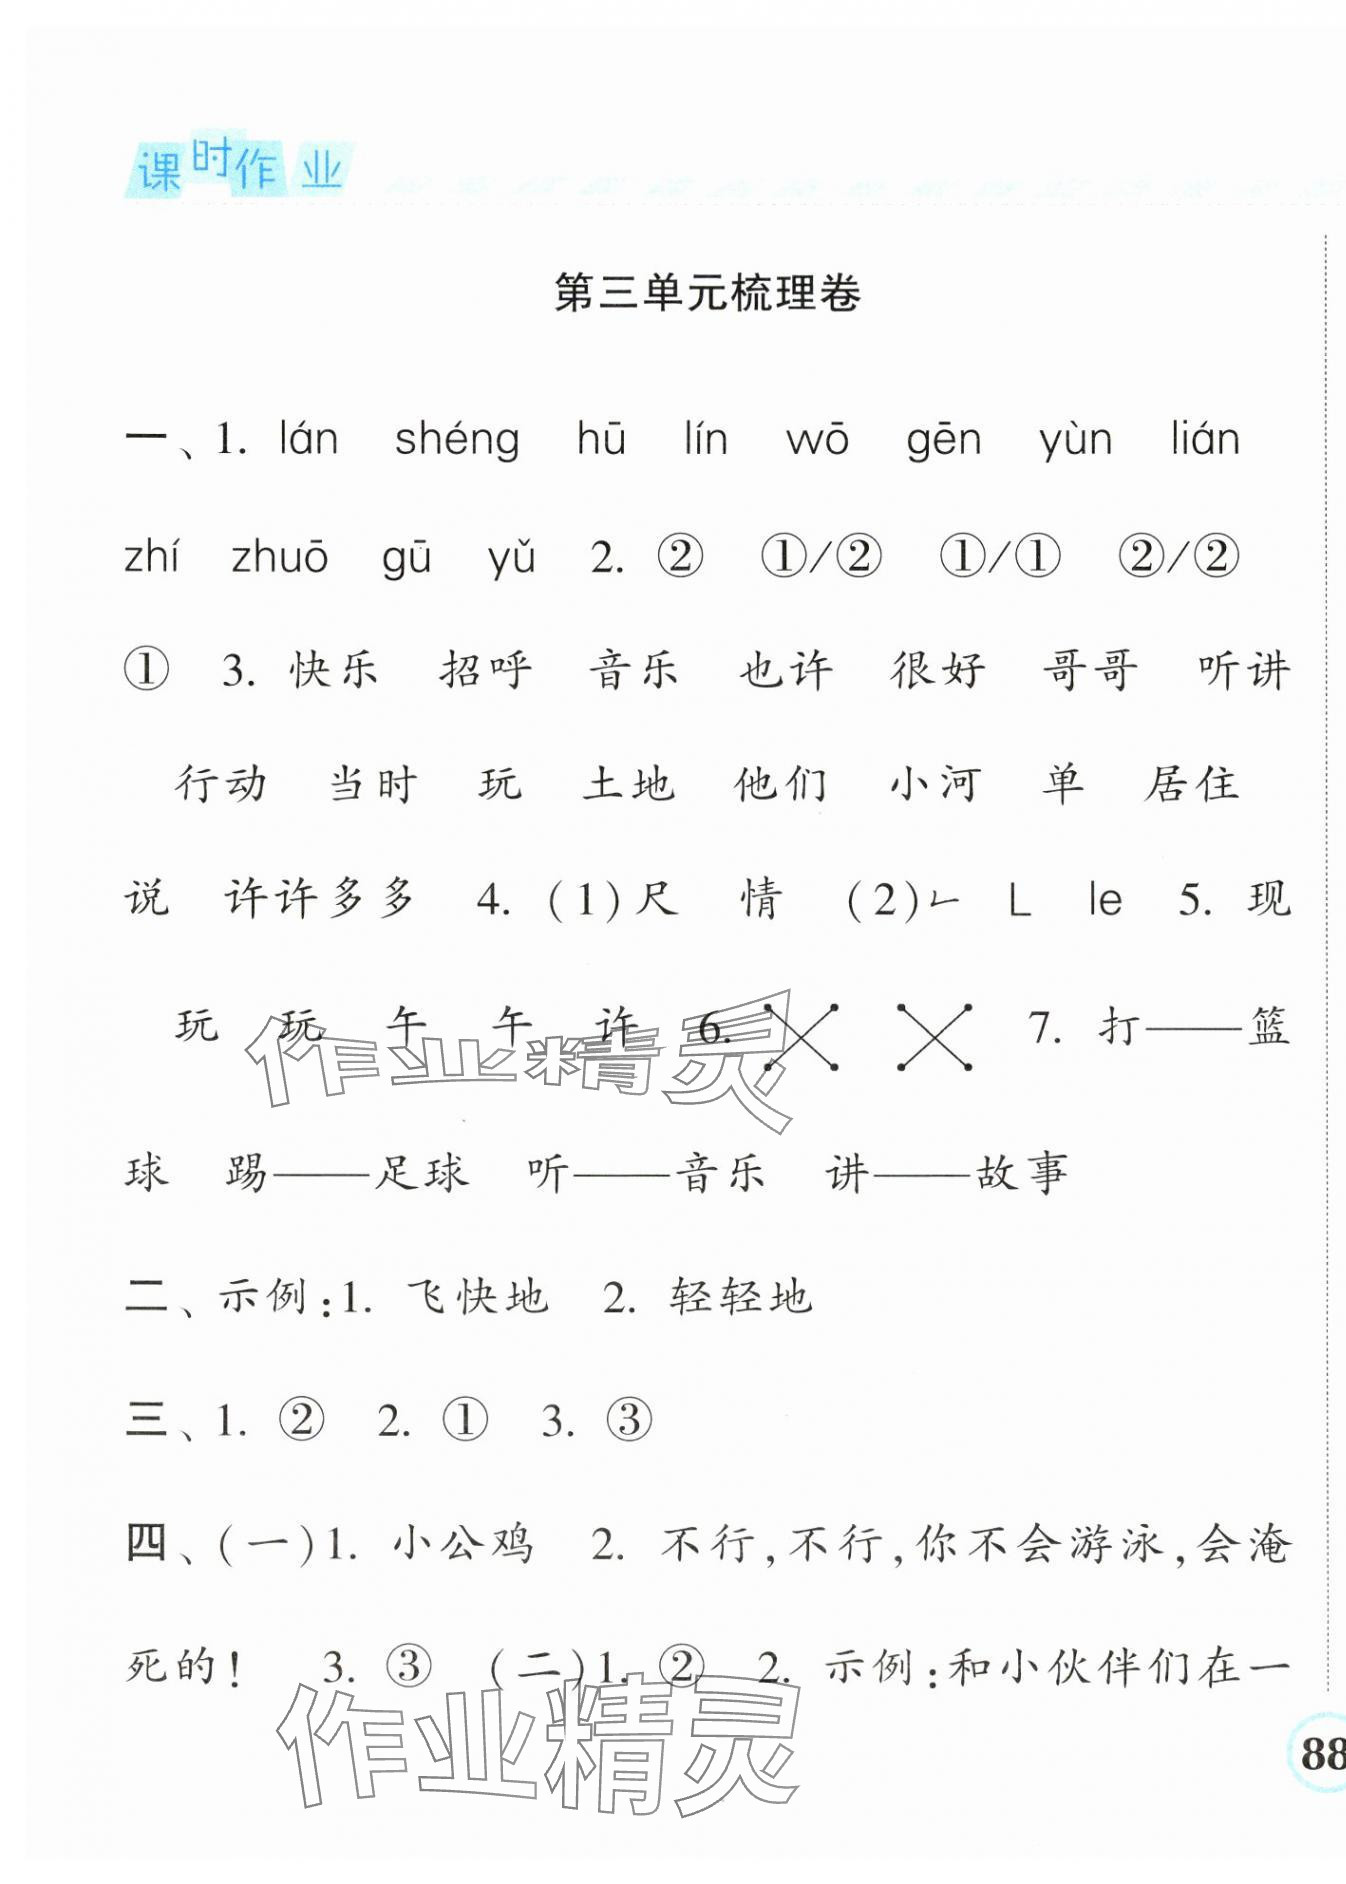 课时作业
第三单元梳理卷
一、1. lán shéng hū lín wō gēn yùn lián
zhí zhuō gū yǔ 2. ② ①/② ①/① ②/②
① 3. 快乐 招呼 音乐 也许 很好 哥哥 听讲
行动 当时 玩 土地 他们 小河 单 居住
说 许许多多 4. (1)尺 情 (2)ㄴ L le 5. 现
玩 玩 午 午 许 6. 7. 打——篮
球 踢——足球 听——音乐 讲——故事
二、示例:1. 飞快地 2. 轻轻地
三、1. ② 2. ① 3. ③
四、(一)1. 小公鸡 2. 不行,不行,你不会游泳,会淹
死的! 3. ③ (二)1. ② 2. 示例:和小伙伴们在一
88
作业精灵
作业精灵